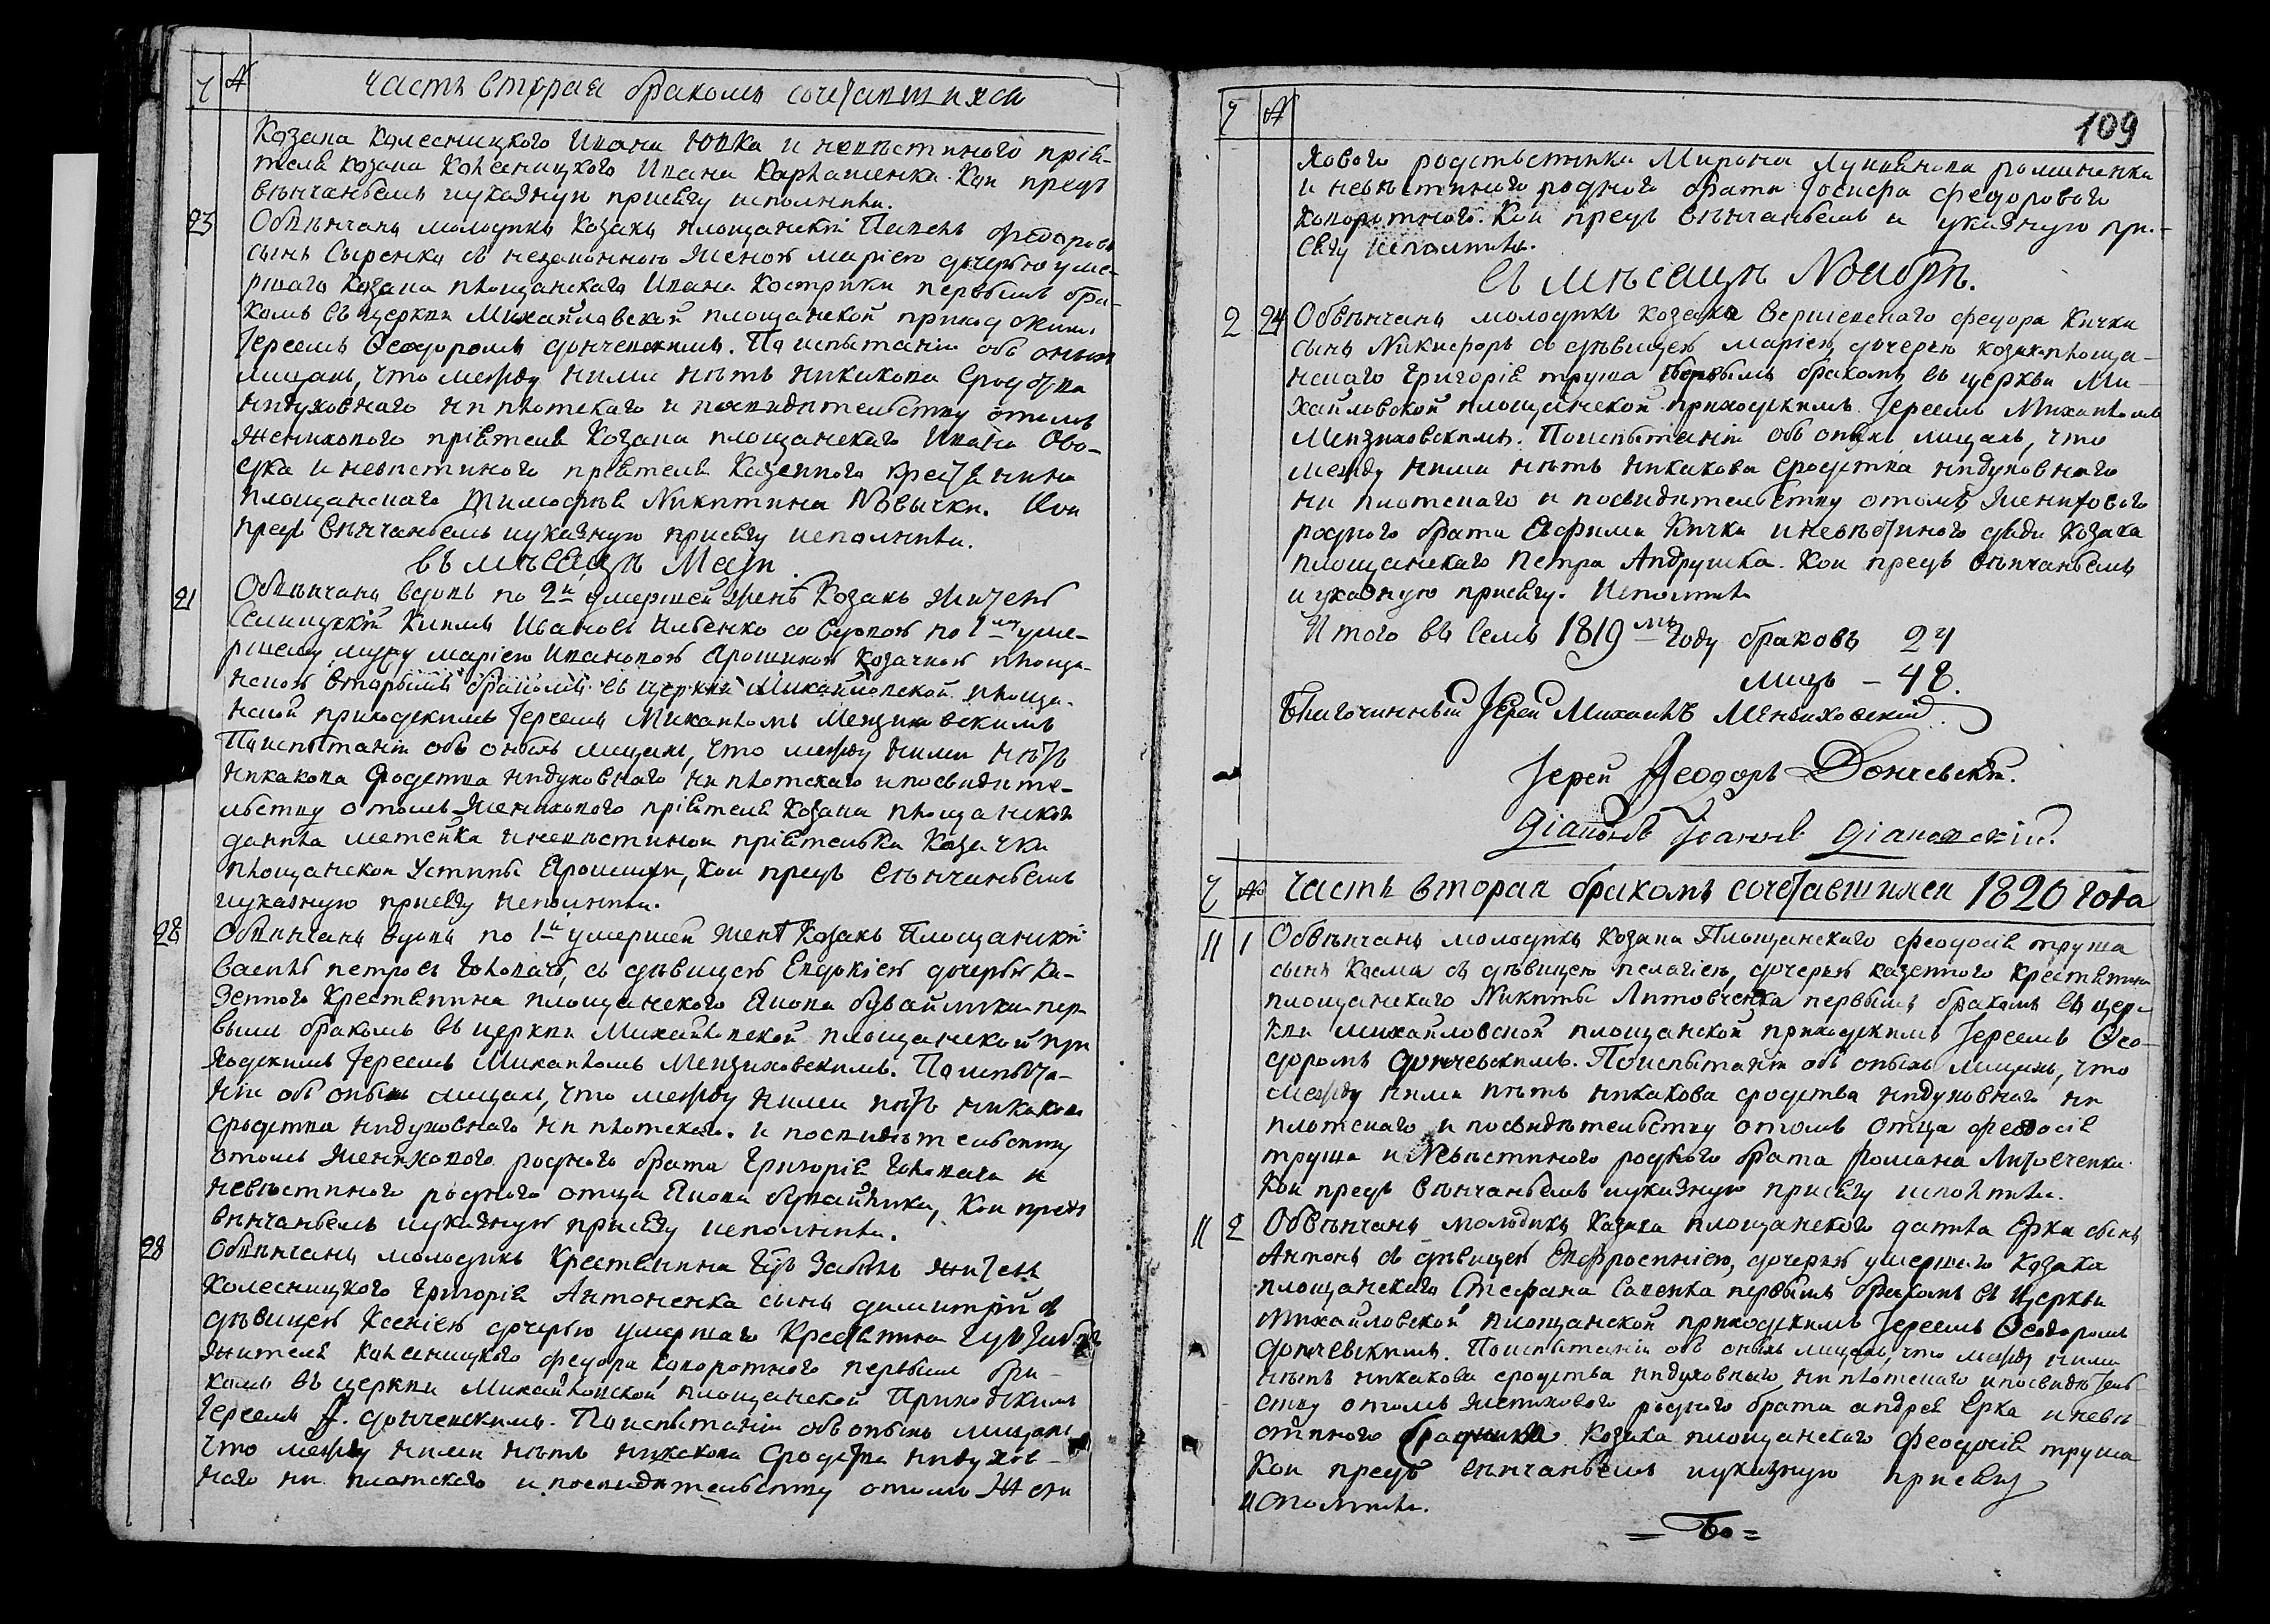 Ч №
часть вторая бракомъ сочетавшихся
Козака Колесницкого Ивана Юпка и невѣстиного прія-
теля козака Колесницкого Ивана Карпашенка. Кои предъ
вѣнчаньемъ иуказную присягу исполнили.
23 Обвѣнчанъ молодикъ Козакъ площанскій Павелъ Федоровъ
сынъ Сыренка съ незаконною женою маріею дочерью уме-
ршаго Козака площанскаго Ивана Кострики первымъ бра-
комъ въ церкви Михайловской площанской приходскимъ
Іереемъ Ѳеодоромъ Дончевскимъ. По испытаніи объ оныхъ
лицахъ, что между ними нѣтъ никакова сродства
нидуховнаго ни плотскаго и посвидѣтельству отомъ
женихового пріятеля Козака площанскаго Ивана Ово-
да и невѣстиного пріятеля Казенного крестянина
площанскаго Тимофѣя Никитина Кои
предъ вѣнчаньемъ иуказную присягу исполнили.
въ мѣсяцѣ Маи
21 Обвѣнчанъ вдовъ по 2й умершей женѣ Козакъ житель
Семицкій Иванова со вдовою по 1му уме-
ршему мужу маріею Ивановою Ярошихою Козачкою площа-
нскою вторымъ бракомъ въ церкви Михайловской площа-
нской приходскимъ Іереемъ Михаиломъ Мензиховскимъ
По испытаніи объ оныхъ лицахъ, что между ними нѣтъ
никакова сродства нидуховнаго ни плотскаго и посвидѣте-
льству отомъ женихового пріятеля Козака площанского
данила метейка иневѣстиной пріятельки Козачки
площанской Устины Ярошихи, Кои предъ вѣнчаньемъ
иуказную присягу исполнили.
28 Обвѣнчанъ вдовъ по 1й умершей женѣ Козакъ Площанскій
Василь петровъ Головачъ, съ дѣвицею Евдокіею дочерью Ка-
зенного Крестянина площанского Якова пер-
вымъ бракомъ въ церкви Михайловской площанской при
ходскимъ Іереемъ Михаиломъ Мензиховскимъ. По испыта-
ніи объ оныхъ лицахъ, что между ними нѣтъ никакова
сродства нидуховнаго ни плотскаго. и посвидѣтельству
отомъ женихового родного брата Григорія Головача и
невѣстиного родного отца Якова Кои предъ
вѣнчаньемъ иуказную присягу исполнили.
28 Обвѣнчанъ молодикъ Крестянина жителя
Колесницкого Григорія Антоненка сынъ димитрій съ
дѣвицею Ксеніею дочерью умершаго Крестянина
жителя Колесницкого федора Капоротного первымъ бра-
комъ въ церкви Михайловской площанской Приходскимъ
Іереемъ Ѳ. Дончевскимъ. По испытаніи объ оныхъ лицахъ
что между ними нѣтъ никакова Сродства нидухов-
наго ни плотскаго и посвидѣтельству отомъ Жени
109
Ч №
хового родственника Мирона романенка
и невѣстиного родного брата Іосифа Федорового
Капоротного. Кои предъ вѣнчаньемъ и указную при-
сягу исполнили.
въ мѣсяцѣ Ноябрѣ.
2 24 Обвѣнчанъ молодикъ козака федора Кички
сынъ Никифоръ со дѣвицею маріею, дочерью козака площа-
нскаго Григорія труша первымъ бракомъ въ церкви Ми-
хайловской площанской приходскимъ Іереемъ Михаиломъ
Мензиховскимъ. По испытаніи объ оныхъ лицахъ, что
между ними нѣтъ никакова сродства нидуховнаго
ни плотскаго и посвидѣтельству отомъ женихового
родного брата Евфима Кички иневѣстиного дяди Козака
площанскаго Петра Андрушка. Кои предъ вѣнчаньемъ
и указную присягу. Исполнили
Итого въ семъ 1819мъ году браковъ 24
лицъ – 48.
Благочинный Іерей Михаилъ Мензиховскій
Іерей Ѳеодоръ Дончевскій.
Діаконъ Іоаннъ Діаковскій.
Ч № Часть вторая бракомъ сочетавшихся 1820 года
11 1 Обвѣнчанъ молодикъ Козака Площанскаго феодосія труша
сынъ Косма съ дѣвицею пелагіею, дочерью казенного крестянина
площанскаго Никиты Литовченка первымъ бракомъ въ цер-
кви михайловской площанской приходскимъ Іереемъ Ѳео-
доромъ Дончевскимъ. По испытаніи объ оныхъ лицахъ, что
между ними нѣтъ никакова сродства нидуховнаго ни
плотскаго и посвидѣтельству отомъ отца феодосія
труша и Невѣстиного родного брата Романа Литовченка.
кои предъ вѣнчаньемъ иуказную присягу исполнили.
11 2 Обвѣнчанъ молодикъ Козака площанского данила Ерка сынъ
Антонъ съ дѣвицею Евфросиніею, дочерью умершаго Козака
площанскаго Стефана Сапенка первымъ бракомъ въ церкви
Михайловской площанской приходскимъ Іереемъ Ѳеодоромъ
Дончевскимъ. По испытаніи объ оныхъ лицахъ, что между ними
нѣтъ никакова сродства нидуховнаго ни плотскаго ипосвидѣтель-
ству отомъ женихового родного брата андрея Ерка иневѣ-
стиного Козака площанскаго Феодосія труша
Кои предъ вѣнчаньемъ иуказную присягу
исполнили.